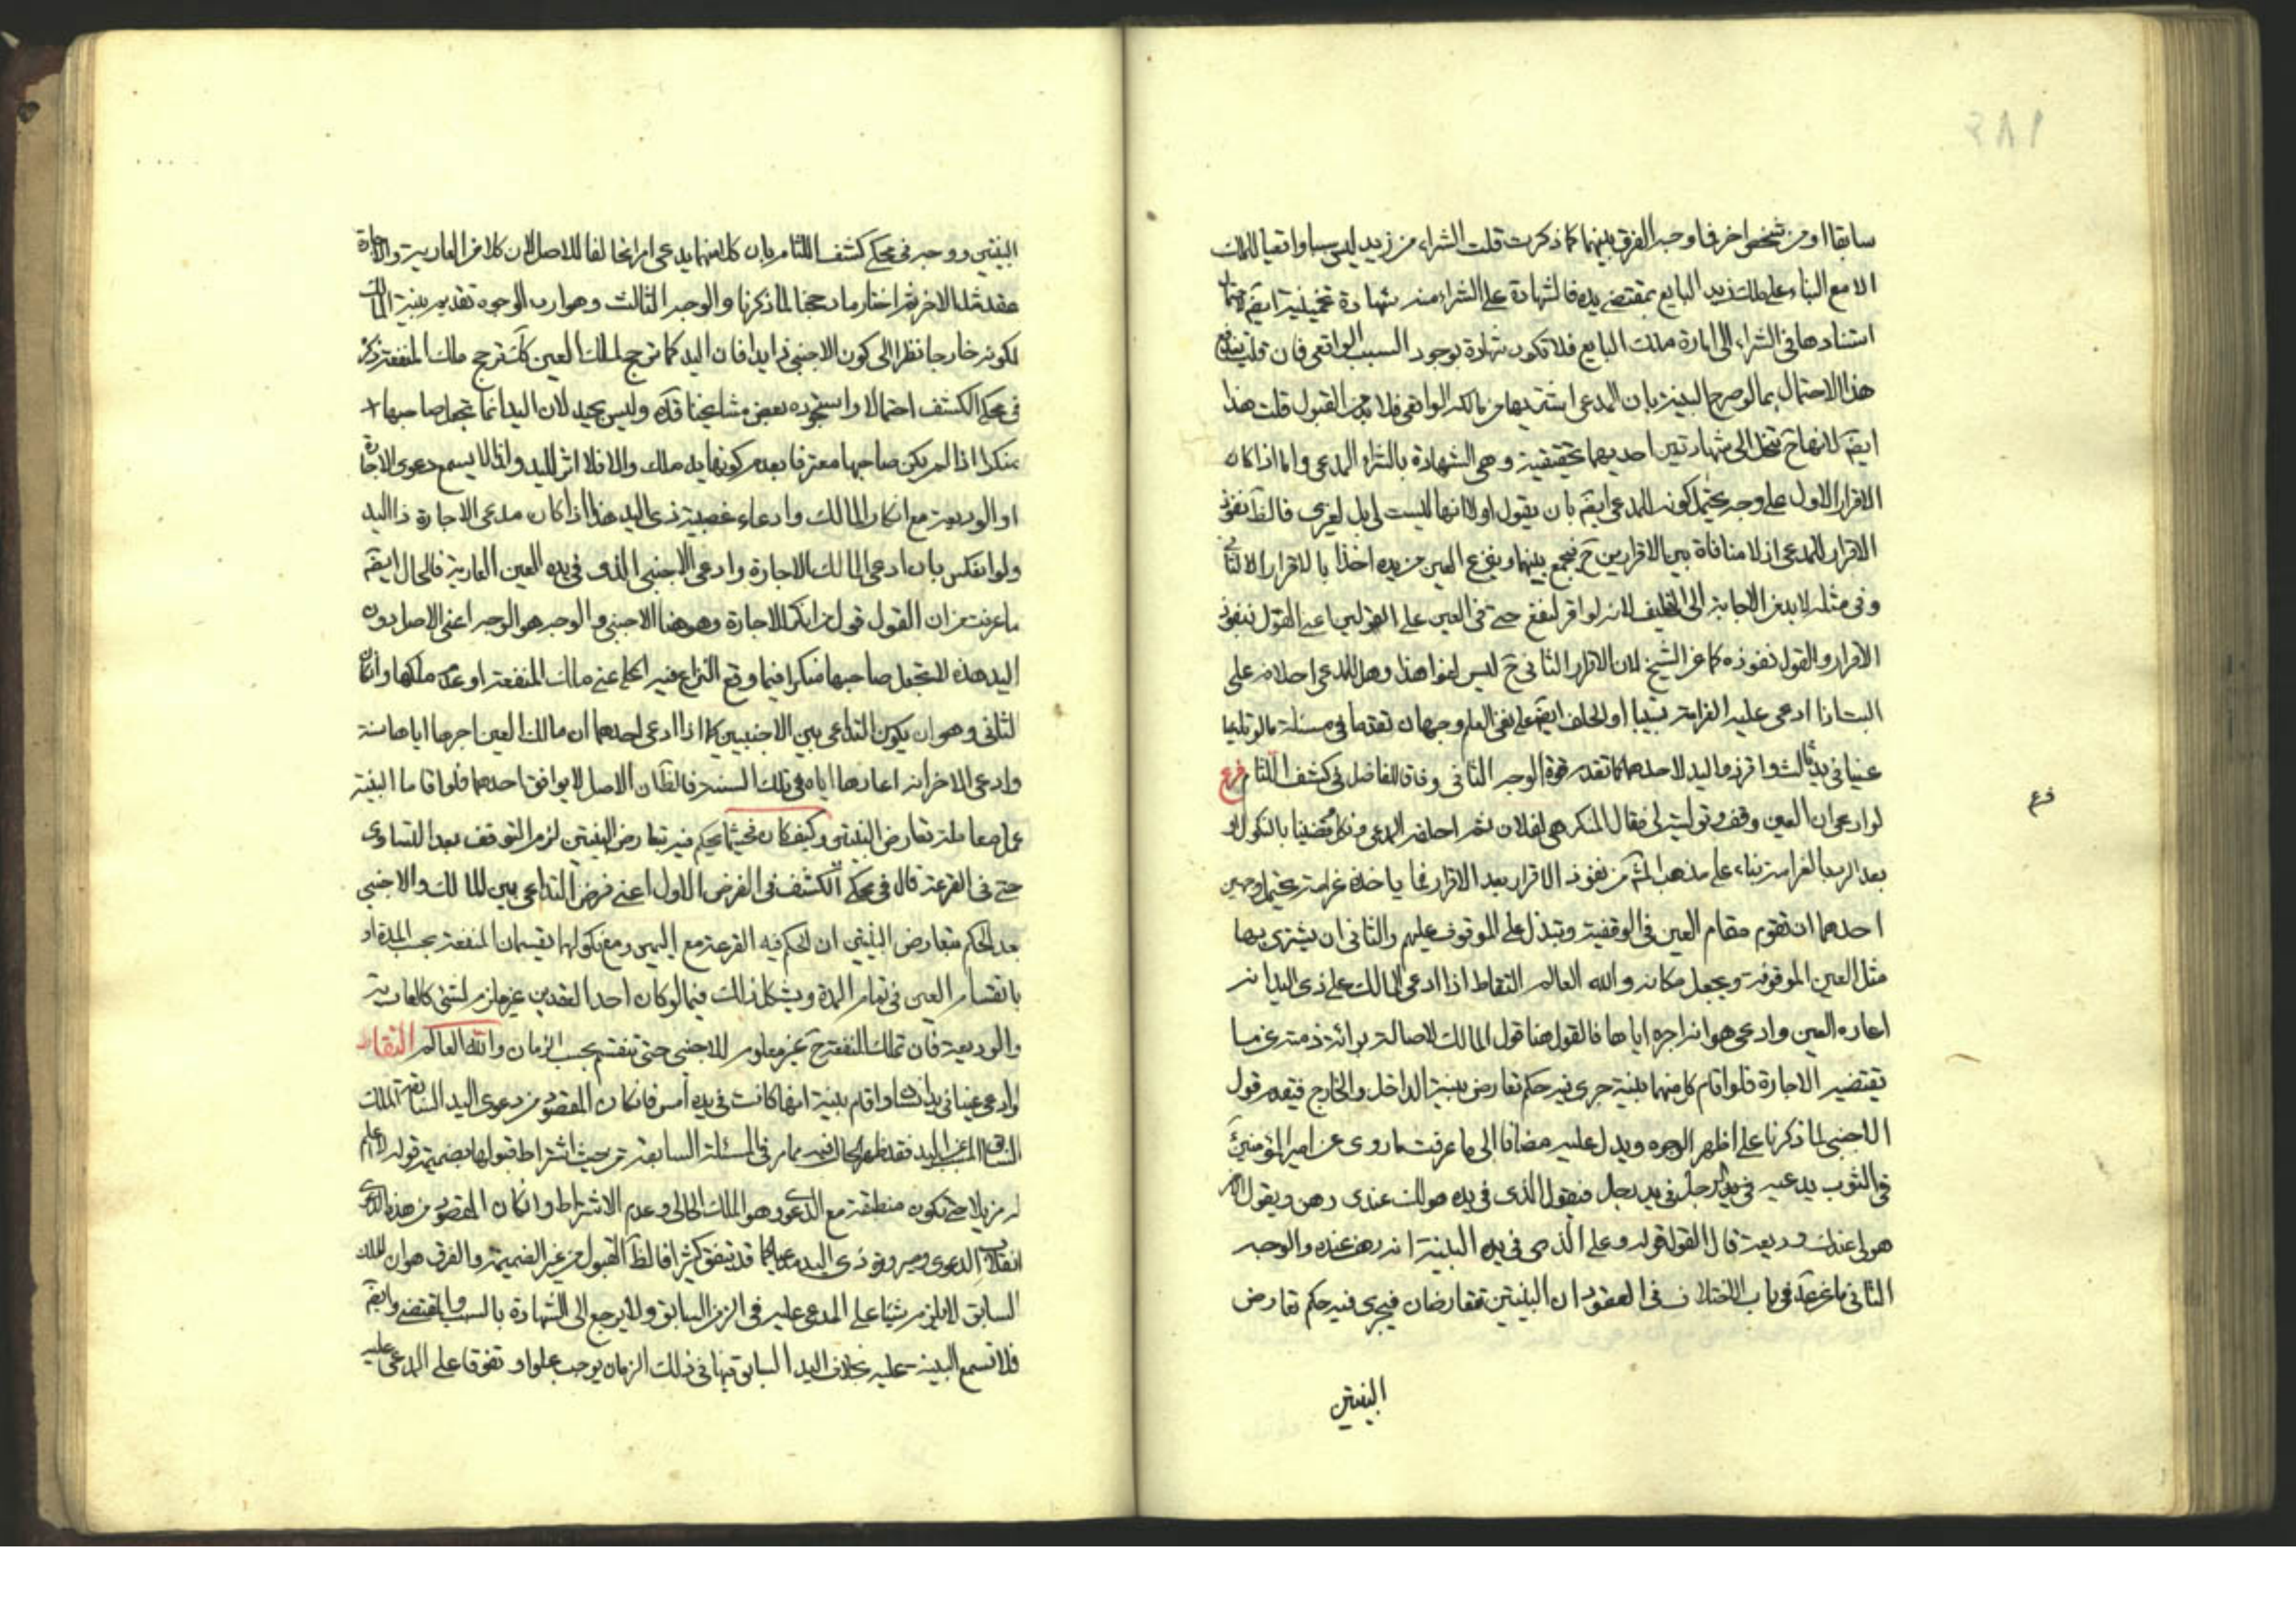 سابقا او من شخص اخر فما وجه الفرق بينهما كما ذكرت قلت الشراء من زيد ليس سببا واقعيا للملك
الا مع البناء على ملك زيد البايع بمقتضى يده فالشهادة على الشراء منه شهادة تخمينية ايضم
استنادها فى الشراء الى امارة ملك البايع فلا تكون شهادة بوجود السبب الواقعى فان قلت
هذا الاحتمال بما لو صرح البينة بان المدعى اشتريها من مالكه الواقعى فلا بد من القبول قلت هذا
ايضم لانها ح تنحل الى شهادتين احديهما تحقيقية وهى الشهادة بالشراء المدعى واما اذا كان
الاقرار الاول على وجه يحتمل كونه للمدعى ايضم بان يقول اولا انها ليست لى بل لغيرى فالظ نفوذ
الاقرار للمدعى اذ لا منافاة بين الاقرارين ح فيجمع بينهما وينزع العين من يده اخذا بالاقرار الثانى
وفى مثله لا بد من الاجابة الى التحليف لانه لو اقر لنفع حتى فى العين على القولين اعنى القول بنفوذ
الاقرار والقول بعدم نفوذه كما عن الشيخ لان الاقرار الثانى ح ليس لغوا هذا وهل للمدعى احلافه على
البت اذا ادعى عليه الغرامة او الحلف ايضم على نفى العلم وجهان تقدما فى مسئلة ما لو تداعيا
عينا فى يد ثالث واقر ذو اليد لاحدهما كما تقدم قوة الوجه الثانى وفاقا للفاضل فى كشف اللثام فرع
لو ادعى ان العين وقف وتوليته لى فقال المنكر هى لفلان ثم احلفه المدعى ونكل وقضينا بالنكول او
بعد الرد بالغرامة بناء على مذهب المش من نفوذ الاقرار بعد الاقرار فما ياخذه غرامة يحتمل وجهين
احدهما ان تقوم مقام العين فى الوقفية وتبذل على الموقوف عليهم والثانى ان يشترى بها
مثل العين الموقوفة ويجعل مكانه والله العالم التقاط اذا ادعى المالك على ذى اليد انه
اعاره العين وادعى هو انه اجره اياها فالقول هنا قول المالك لاصالة برائة ذمته عن ما
تقتضيه الاجارة فلو اقام كل منهما بينة جرى فيه حكم تعارض بينة الداخل والخارج فيقدم قول
الاجنبى لما ذكرنا على اظهر الوجوه ويدل عليه مضافا الى ما عرفت ما روى عن امير المؤمنين
فى الثوب يدعيه الرجل فى يد رجل فيقول الذى فى يده هو لك عندى رهن ويقول الاخر
هو لى عندك وديعة قال القول قوله وعلى الذى فى يده البينة انه رهن عنده والوجه
الثانى ما عن عد فى باب الاختلاف فى العقود ان البينتين تتعارضان فيجرى فيه حكم تعارض
البينتين
فرع
البينتين ووجهه فى محكى كشف اللثام بان كلا منهما يدعى امرا مخالفا للاصل لان كلا من العارية والاجارة
عقد مثل الاخر ثم اختار ما رجحنا لما ذكرنا والوجه الثالث وهو ارب الوجوه تقديم بينة المالك
لكونه خارجا نظرا الى كون الاجنبى ذا يد فان اليد كما ترجح ملك العين كك ترجح ملك المنفعة ذكره
فى محكى الكشف احتمالا واستجوده بعض مشايخنا قده وليس بجيد لان اليد انما تجعل صاحبها
منكرا اذا لم يكن صاحبها معترفا بعدم كونها يد ملك والا فلا اثر لليد ولذا لا يسمع دعوى الاجارة
او الوديعة مع انكار المالك وادعاء غصبية ذى اليد هذا اذا كان مدعى الاجارة ذا اليد
ولو انعكس بان ادعى المالك الاجارة وادعى الاجنبى الذى فى يده العين العارية فالحال ايضم
ما عرفت من ان القول قول من انكر الاجارة وهو هنا الاجنبى والوجه هو الوجه اعنى الاصل دون
اليد هذه لا تجعل صاحبها منكرا فيما وقع النزاع فيه اعنى ملك المنفعة او عدم ملكها واما
الثانى وهو ان يكون التداعى بين الاجنبيين كما اذا ادعى احدهما ان مالك العين اجرها اياها سنة
وادعى الاخر انه اعارها اياه فى تلك السنة فالظ ان الاصل لا يوافق احدهما فلو اقاما البينة
عمل معاملة تعارض البينتين وكيف كان فحيثما يحكم فيه بتعارض البينتين لزم التوقف بعد التساوى
حتى فى القرعة قال فى محكى الكشف فى الفرض الاول اعنى فرض التداعى بين المالك والاجنبى
بعد الحكم بتعارض البينتين ان الحكم فيه القرعة مع اليمين ومع نكولهما يقسمان المنفعة بحسب المدة او
بانقسام العين فى تمام المدة ويشكل ذلك فيما لو كان احد العقدين غير ملزم لشئ كالعارية
والوديعة فان تملك المنفعة ح غير معلوم للاجنبى حتى تنقسم بحسب الزمان والله العالم التقاط
لو ادعى عينا فى يد انسان واقام بينة انها كانت فى يده امس فان كان المقصود من دعوى اليد السابقة الملك
السابق المسبب عن اليد فقد ظهر الحال فيه مما مر فى المسئلة السابقة من حيث اشتراط قبولها بضميمة قوله
لم يزل حتى تكون منطبقة مع الدعوى وهو الملك الحالى وعدم الاشتراط وان كان المقصود من هذه الدعوى
انقلاب الدعوى وصيرورة ذى اليد مدعيا كما قد يتفق كثيرا فالظ القبول من غير الضميمة والفرق هو ان الملك
السابق لا يلزم شيئا على المدعى عليه فى الزمن السابق ولا يرجع الى الشهادة بالسبب والمقتضى
فلا تسمع البينة عليه بخلاف اليد السابق فانها فى ذلك الزمان يوجب علوا وتفوقا على المدعى عليه